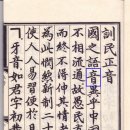 訓民正音
國之語音異乎中
不相流通故愚民
而終不得伸其情
爲此憫然新制二十
使人人易習便於日
ㄱ牙音如君字初發